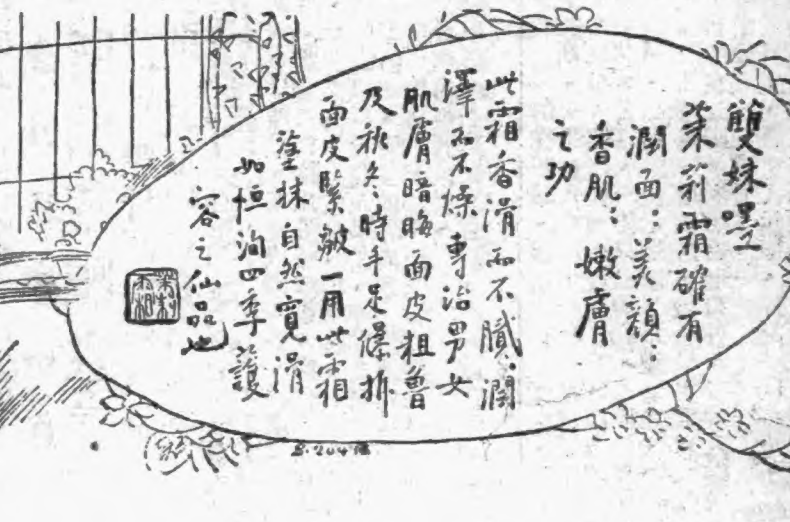 雙妹嚜
茉莉霜確有
潤面：美顏：
香肌：嫩膚
之功
此霜香滑而不膩潤
澤而不燥專治男女
肌膚暗晦面皮粗魯
及秋冬時手足爆拆
面皮緊皺一用此霜
塗抹自然寬滑
如恒洵四季護
容之仙品也